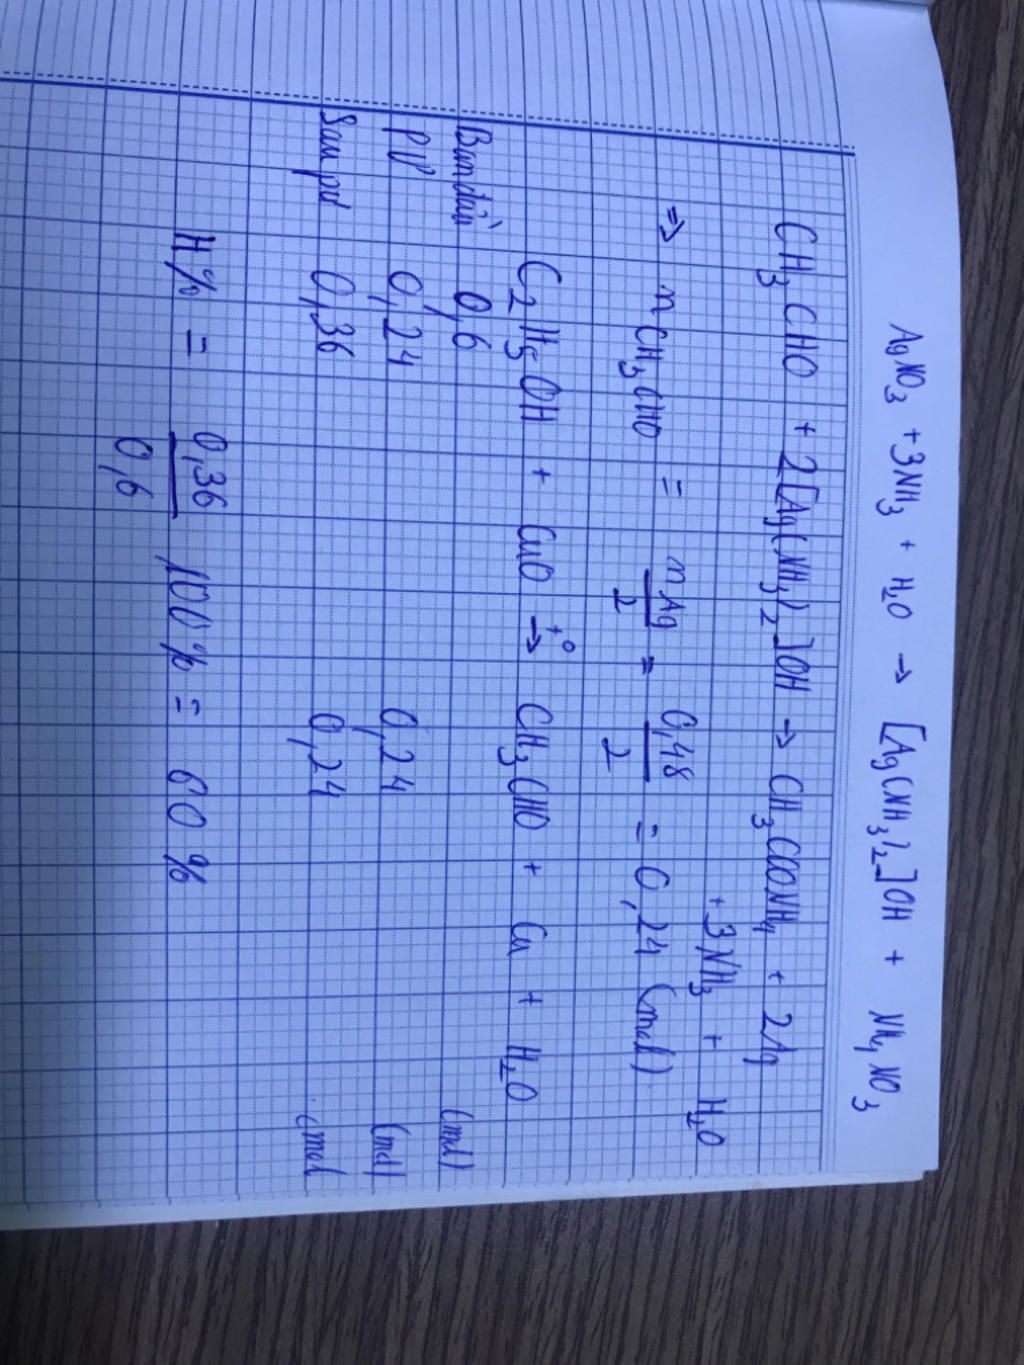 AgNO3 + 3NH3 + H2O → [Ag(NH3)2]OH + NH4NO3
CH3CHO + 2[Ag(NH3)2]OH → CH3COONH4 + 2Ag
+ 3NH3 + H2O
=> nCH3CHO = nAg/2 = 0,48/2 = 0,24 (mol)
C2H5OH + CuO →t° CH3CHO + Cu + H2O
Ban đầu 0,6 (mol)
PƯ 0,24 0,24 (mol)
Sau pư 0,36 0,24 (mol
H% = 0,36/0,6 100% = 60%